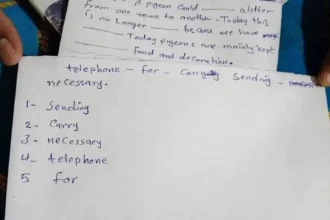 A pigeon could ___ a letter
from one town to another. Today this
is no longer ___ because we have
___ Today pigeons are mainly kept
___ food and decoration.
telephone - for - carry - Sending -
necessary.
1- Sending
2- Carry
3- necessary
4- telephone
5 for